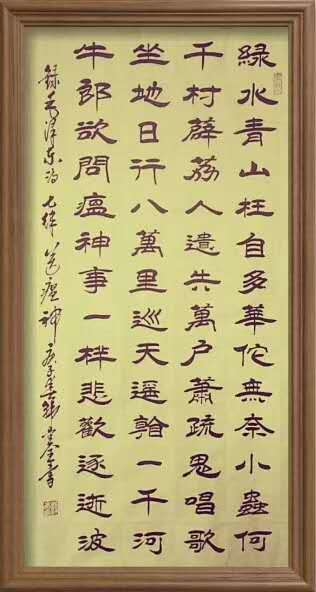 綠水青山枉自多華佗無奈小蟲何
千村薜荔人遺失萬戶蕭疏鬼唱歌
坐地日行八萬里巡天遙看一千河
牛郎欲問瘟神事一樣悲歡逐逝波
錄毛澤東詩七律送瘟神庚子書